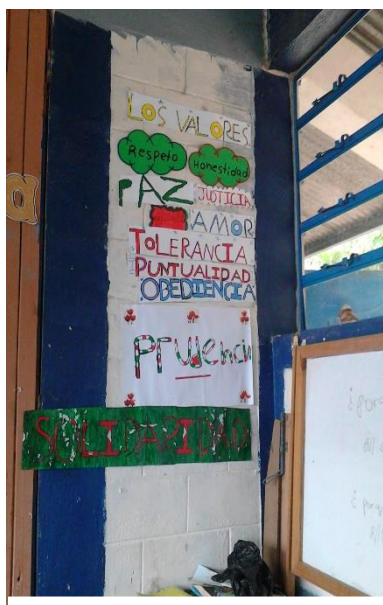 LOS VALORES
Respeto Honestidad
PAZ JUSTICIA
AMOR
TOLERANCIA
PUNTUALIDAD
OBEDIENCIA
Prudencia
SOLIDARIDAD
a